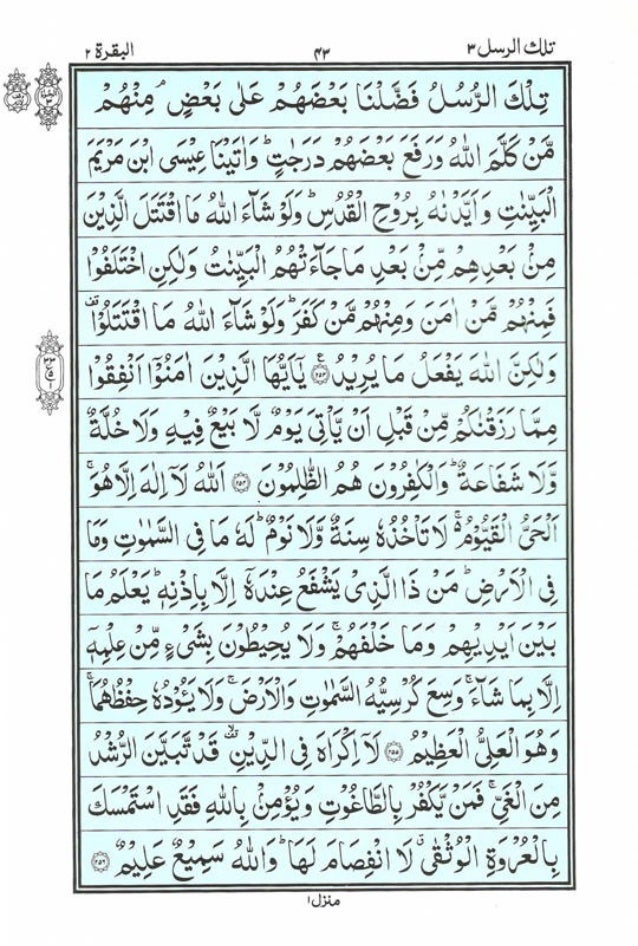 تلك الرسل ٣
٤٣
البقرة ٢
تِلْكَ الرُّسُلُ فَضَّلْنَا بَعْضَهُمْ عَلٰى بَعْضٍ ۘ مِنْهُمْ
مَّنْ كَلَّمَ اللّٰهُ وَرَفَعَ بَعْضَهُمْ دَرَجٰتٍ ؕ وَاٰتَيْنَا عِيْسَى ابْنَ مَرْيَمَ
الْبَيِّنٰتِ وَاَيَّدْنٰهُ بِرُوْحِ الْقُدُسِ ؕ وَلَوْ شَآءَ اللّٰهُ مَا اقْتَتَلَ الَّذِيْنَ
مِنْۢ بَعْدِهِمْ مِّنْۢ بَعْدِ مَا جَآءَتْهُمُ الْبَيِّنٰتُ وَلٰكِنِ اخْتَلَفُوْا
فَمِنْهُمْ مَّنْ اٰمَنَ وَمِنْهُمْ مَّنْ كَفَرَ ؕ وَلَوْ شَآءَ اللّٰهُ مَا اقْتَتَلُوْا ۟
وَلٰكِنَّ اللّٰهَ يَفْعَلُ مَا يُرِيْدُ ﴿٢٥٣﴾ يٰۤاَيُّهَا الَّذِيْنَ اٰمَنُوْۤا اَنْفِقُوْا
مِمَّا رَزَقْنٰكُمْ مِّنْ قَبْلِ اَنْ يَّاْتِيَ يَوْمٌ لَّا بَيْعٌ فِيْهِ وَلَا خُلَّةٌ
وَّلَا شَفَاعَةٌ ؕ وَالْكٰفِرُوْنَ هُمُ الظّٰلِمُوْنَ ﴿٢٥٤﴾ اَللّٰهُ لَاۤ اِلٰهَ اِلَّا هُوَ ۚ
اَلْحَيُّ الْقَيُّوْمُ ۚ لَا تَاْخُذُهٗ سِنَةٌ وَّلَا نَوْمٌ ؕ لَهٗ مَا فِي السَّمٰوٰتِ وَمَا
فِي الْاَرْضِ ؕ مَنْ ذَا الَّذِيْ يَشْفَعُ عِنْدَهٗۤ اِلَّا بِاِذْنِهٖ ؕ يَعْلَمُ مَا
بَيْنَ اَيْدِيْهِمْ وَمَا خَلْفَهُمْ ۚ وَلَا يُحِيْطُوْنَ بِشَيْءٍ مِّنْ عِلْمِهٖۤ
اِلَّا بِمَا شَآءَ ۚ وَسِعَ كُرْسِيُّهُ السَّمٰوٰتِ وَالْاَرْضَ ۚ وَلَا يَـُٔوْدُهٗ حِفْظُهُمَا ۚ
وَهُوَ الْعَلِيُّ الْعَظِيْمُ ﴿٢٥٥﴾ لَاۤ اِكْرَاهَ فِي الدِّيْنِ ۙ قَدْ تَّبَيَّنَ الرُّشْدُ
مِنَ الْغَيِّ ۚ فَمَنْ يَّكْفُرْ بِالطَّاغُوْتِ وَيُؤْمِنْۢ بِاللّٰهِ فَقَدِ اسْتَمْسَكَ
بِالْعُرْوَةِ الْوُثْقٰى ۗ لَا انْفِصَامَ لَهَا ؕ وَاللّٰهُ سَمِيْعٌ عَلِيْمٌ ﴿٢٥٦﴾
منزل ١